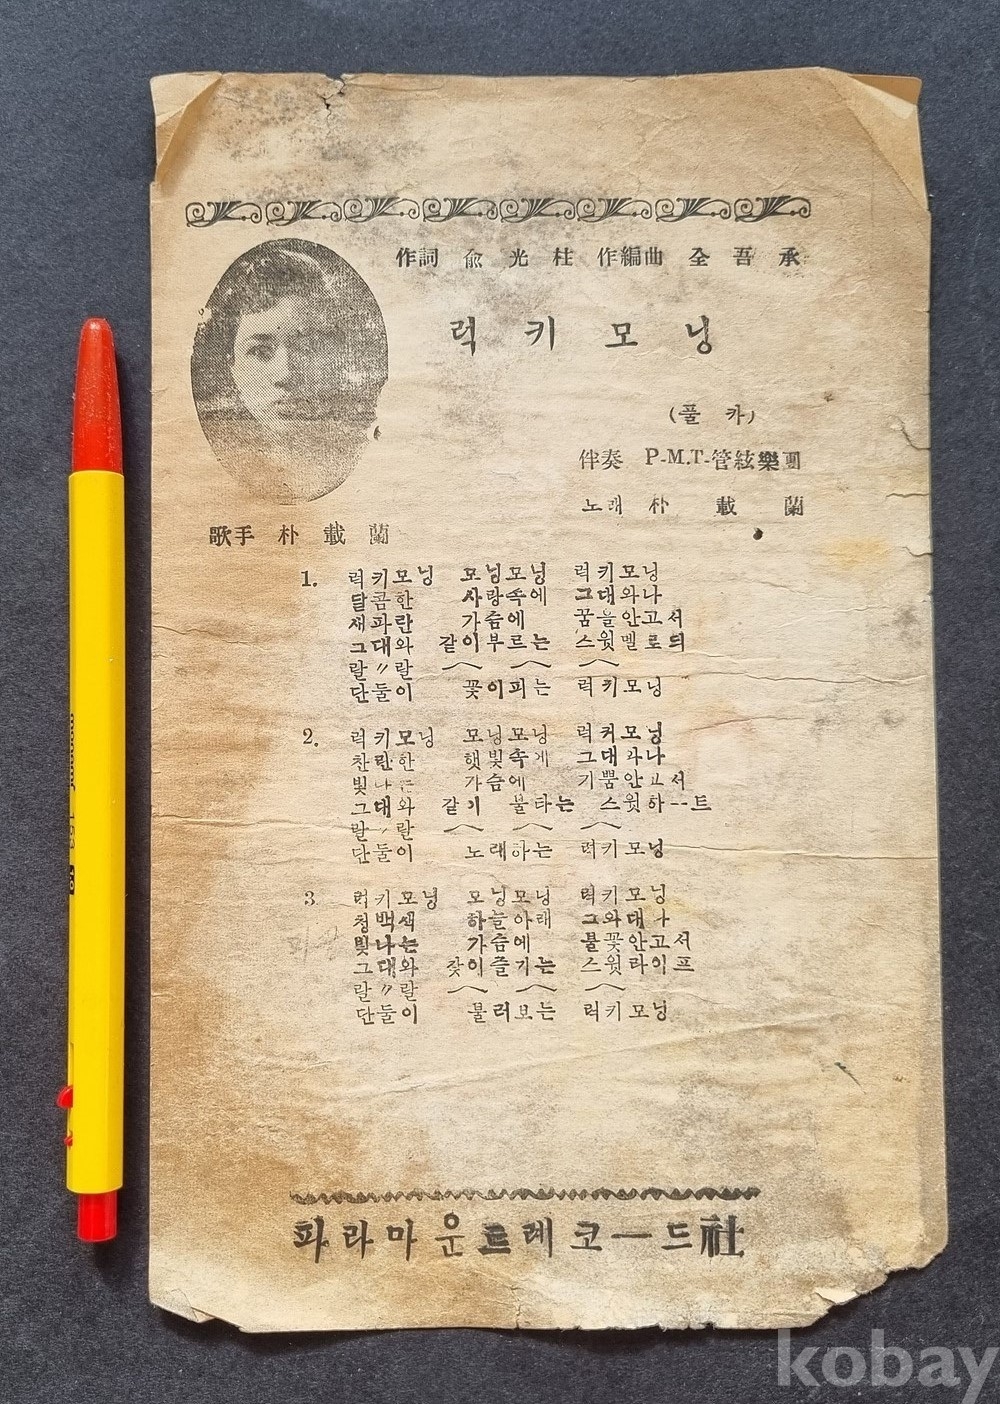 作詞 兪光柱 作編曲 全吾承
럭키모닝
(폴카)
伴奏 P-M.T-管絃樂團
노래 朴載蘭
歌手 朴載蘭
1. 럭키모닝 모닝모닝 럭키모닝
달콤한 사랑속에 그대와나
새파란 가슴에 꿈을안고서
그대와 같이부르는 스윗멜로듸
랄〃랄
단둘이 꽃이피는 럭키모닝
2. 럭키모닝 모닝모닝 럭커모닝
찬란한 햇빛속게 그대와나
빛나는 가슴에 기뿜안고서
그대와 같기 불타는 스윗하--트
랄〃랄
단둘이 노래하는 럭키모닝
3 럭키모닝 모닝모닝 럭키모닝
청백색 하늘아래 그와대나
빛나는 가슴에 불꽃안고서
그대와 갖이즐기는 스윗라이프
랄〃랄
단둘이 불러보는 럭키모닝
파라마운트레코—드社
monami 153
kobay